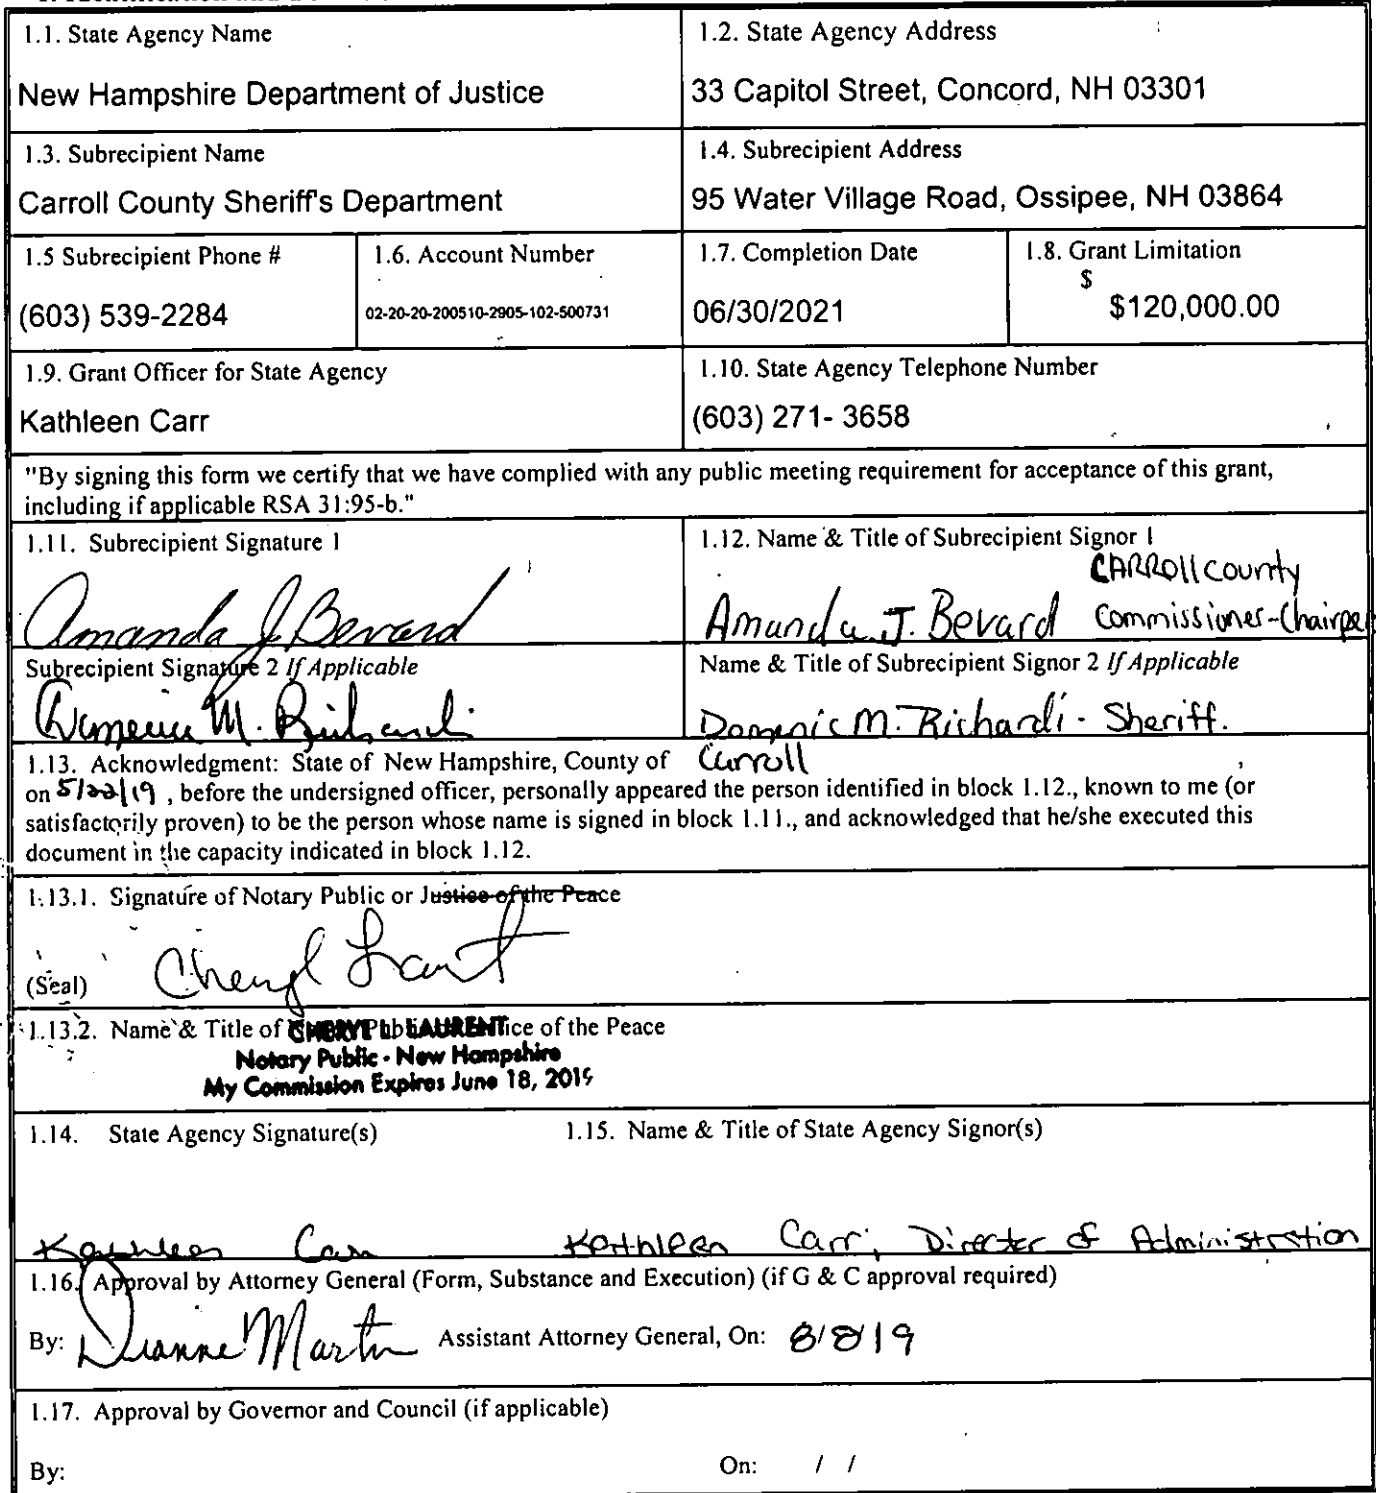 1.1. State Agency Name
New Hampshire Department of Justice
1.2. State Agency Address
33 Capitol Street, Concord, NH 03301
1.3. Subrecipient Name
Carroll County Sheriff's Department
1.4. Subrecipient Address
95 Water Village Road, Ossipee, NH 03864
1.5 Subrecipient Phone #
(603) 539-2284
1.6. Account Number
02-20-20-200510-2905-102-500731
1.7. Completion Date
06/30/2021
1.8. Grant Limitation
$
$120,000.00
1.9. Grant Officer for State Agency
Kathleen Carr
1.10. State Agency Telephone Number
(603) 271- 3658
"By signing this form we certify that we have complied with any public meeting requirement for acceptance of this grant,
including if applicable RSA 31:95-b."
1.11. Subrecipient Signature 1
Amanda J Bevard
1.12. Name & Title of Subrecipient Signor 1
CARROll county
Amanda J. Bevard Commissioner-Chairpe
Subrecipient Signature 2 If Applicable
Domenic M. Richardi
Name & Title of Subrecipient Signor 2 If Applicable
Domenic M. Richardi - Sheriff.
1.13. Acknowledgment: State of New Hampshire, County of Carroll ,
on 5/22/19 , before the undersigned officer, personally appeared the person identified in block 1.12., known to me (or
satisfactorily proven) to be the person whose name is signed in block 1.11., and acknowledged that he/she executed this
document in the capacity indicated in block 1.12.
1.13.1. Signature of Notary Public or Justice of the Peace
Cheryl
(Seal)
1.13.2. Name & Title of CHERYL L. LAURENT ice of the Peace
Notary Public - New Hampshire
My Commission Expires June 18, 2019
1.14. State Agency Signature(s)
1.15. Name & Title of State Agency Signor(s)
Kathleen Carr
Kathleen Carr, Director of Administration
1.16. Approval by Attorney General (Form, Substance and Execution) (if G & C approval required)
By: Dianne Martin Assistant Attorney General, On: 8/8/19
1.17. Approval by Governor and Council (if applicable)
By:
On: / /